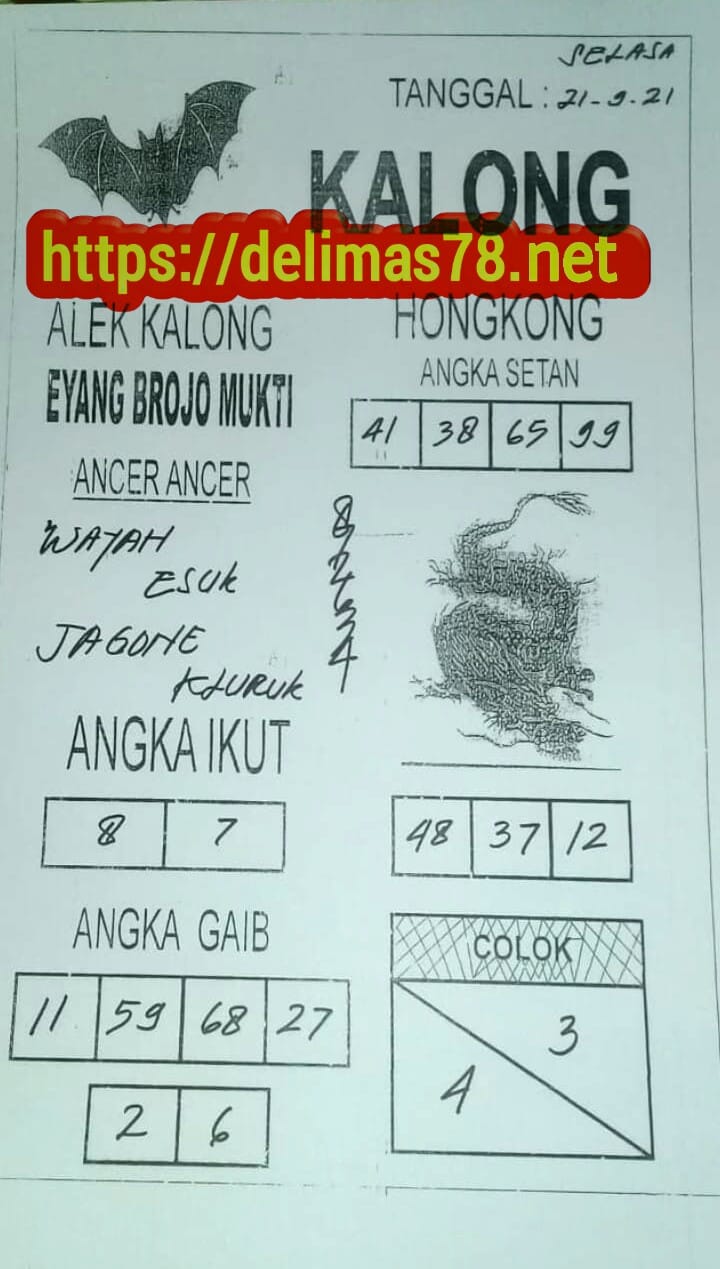 SELASA
TANGGAL : 21-9-21
KALONG
https://delimas78.net
ALEK KALONG
EYANG BROJO MUKTI
ANCER ANCER
WAYAH
ESUK
JAGONE
KLURUK
8
2
3
4
ANGKA IKUT
8 7
ANGKA GAIB
11 59 68 27
2 6
HONGKONG
ANGKA SETAN
41 38 65 99
48 37 12
COLOK
3
4